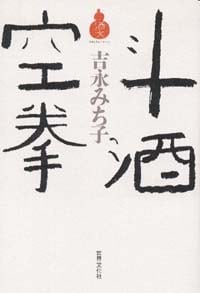 斗酒
空拳
吉永みち子
世界文化社